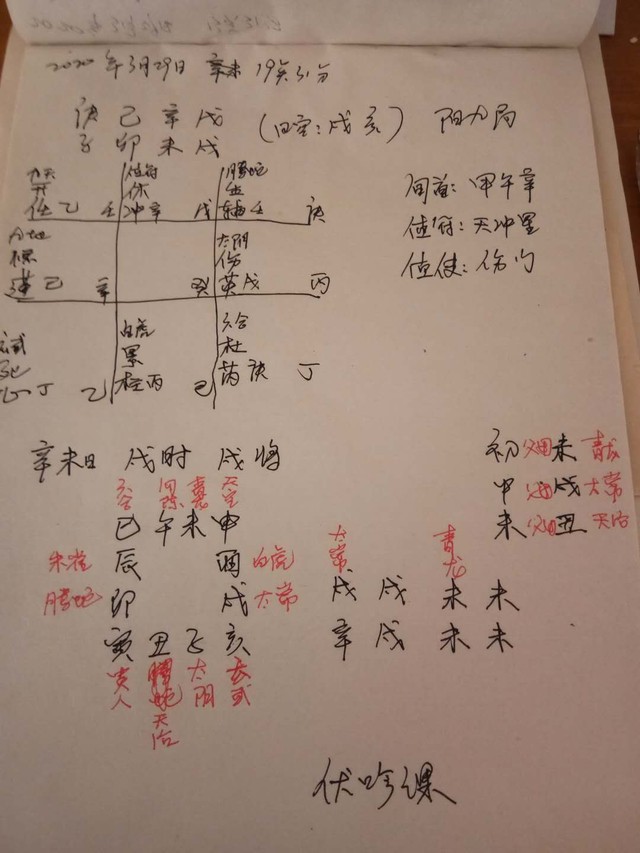 2020年3月29日 辛未 19点31分
庚己辛戊 (日空:戌亥) 阳九局
子卯未戌
九天 值符 腾蛇
开 休 生
任乙 壬 冲辛 戊 辅壬 庚
旬首:甲午辛
值符:天冲星
值使:伤门
九地 太阴
惊 伤
蓬己 辛 癸 英戊 丙
玄武 白虎 六合
死 景 杜
心丁 乙 柱丙 己 芮庚 丁
辛未日 戌时 戌将
初 父母未 青龙
中 父母戌 太常
末 父母丑
六合 勾陈 青龙 天空
巳午未申
朱雀 辰 酉 白虎
腾蛇 卯 戌 太常
太常 青龙
戌 戌 未 未
辛 戌 未 未
寅丑子亥
贵人 太阴 玄武
伏吟课